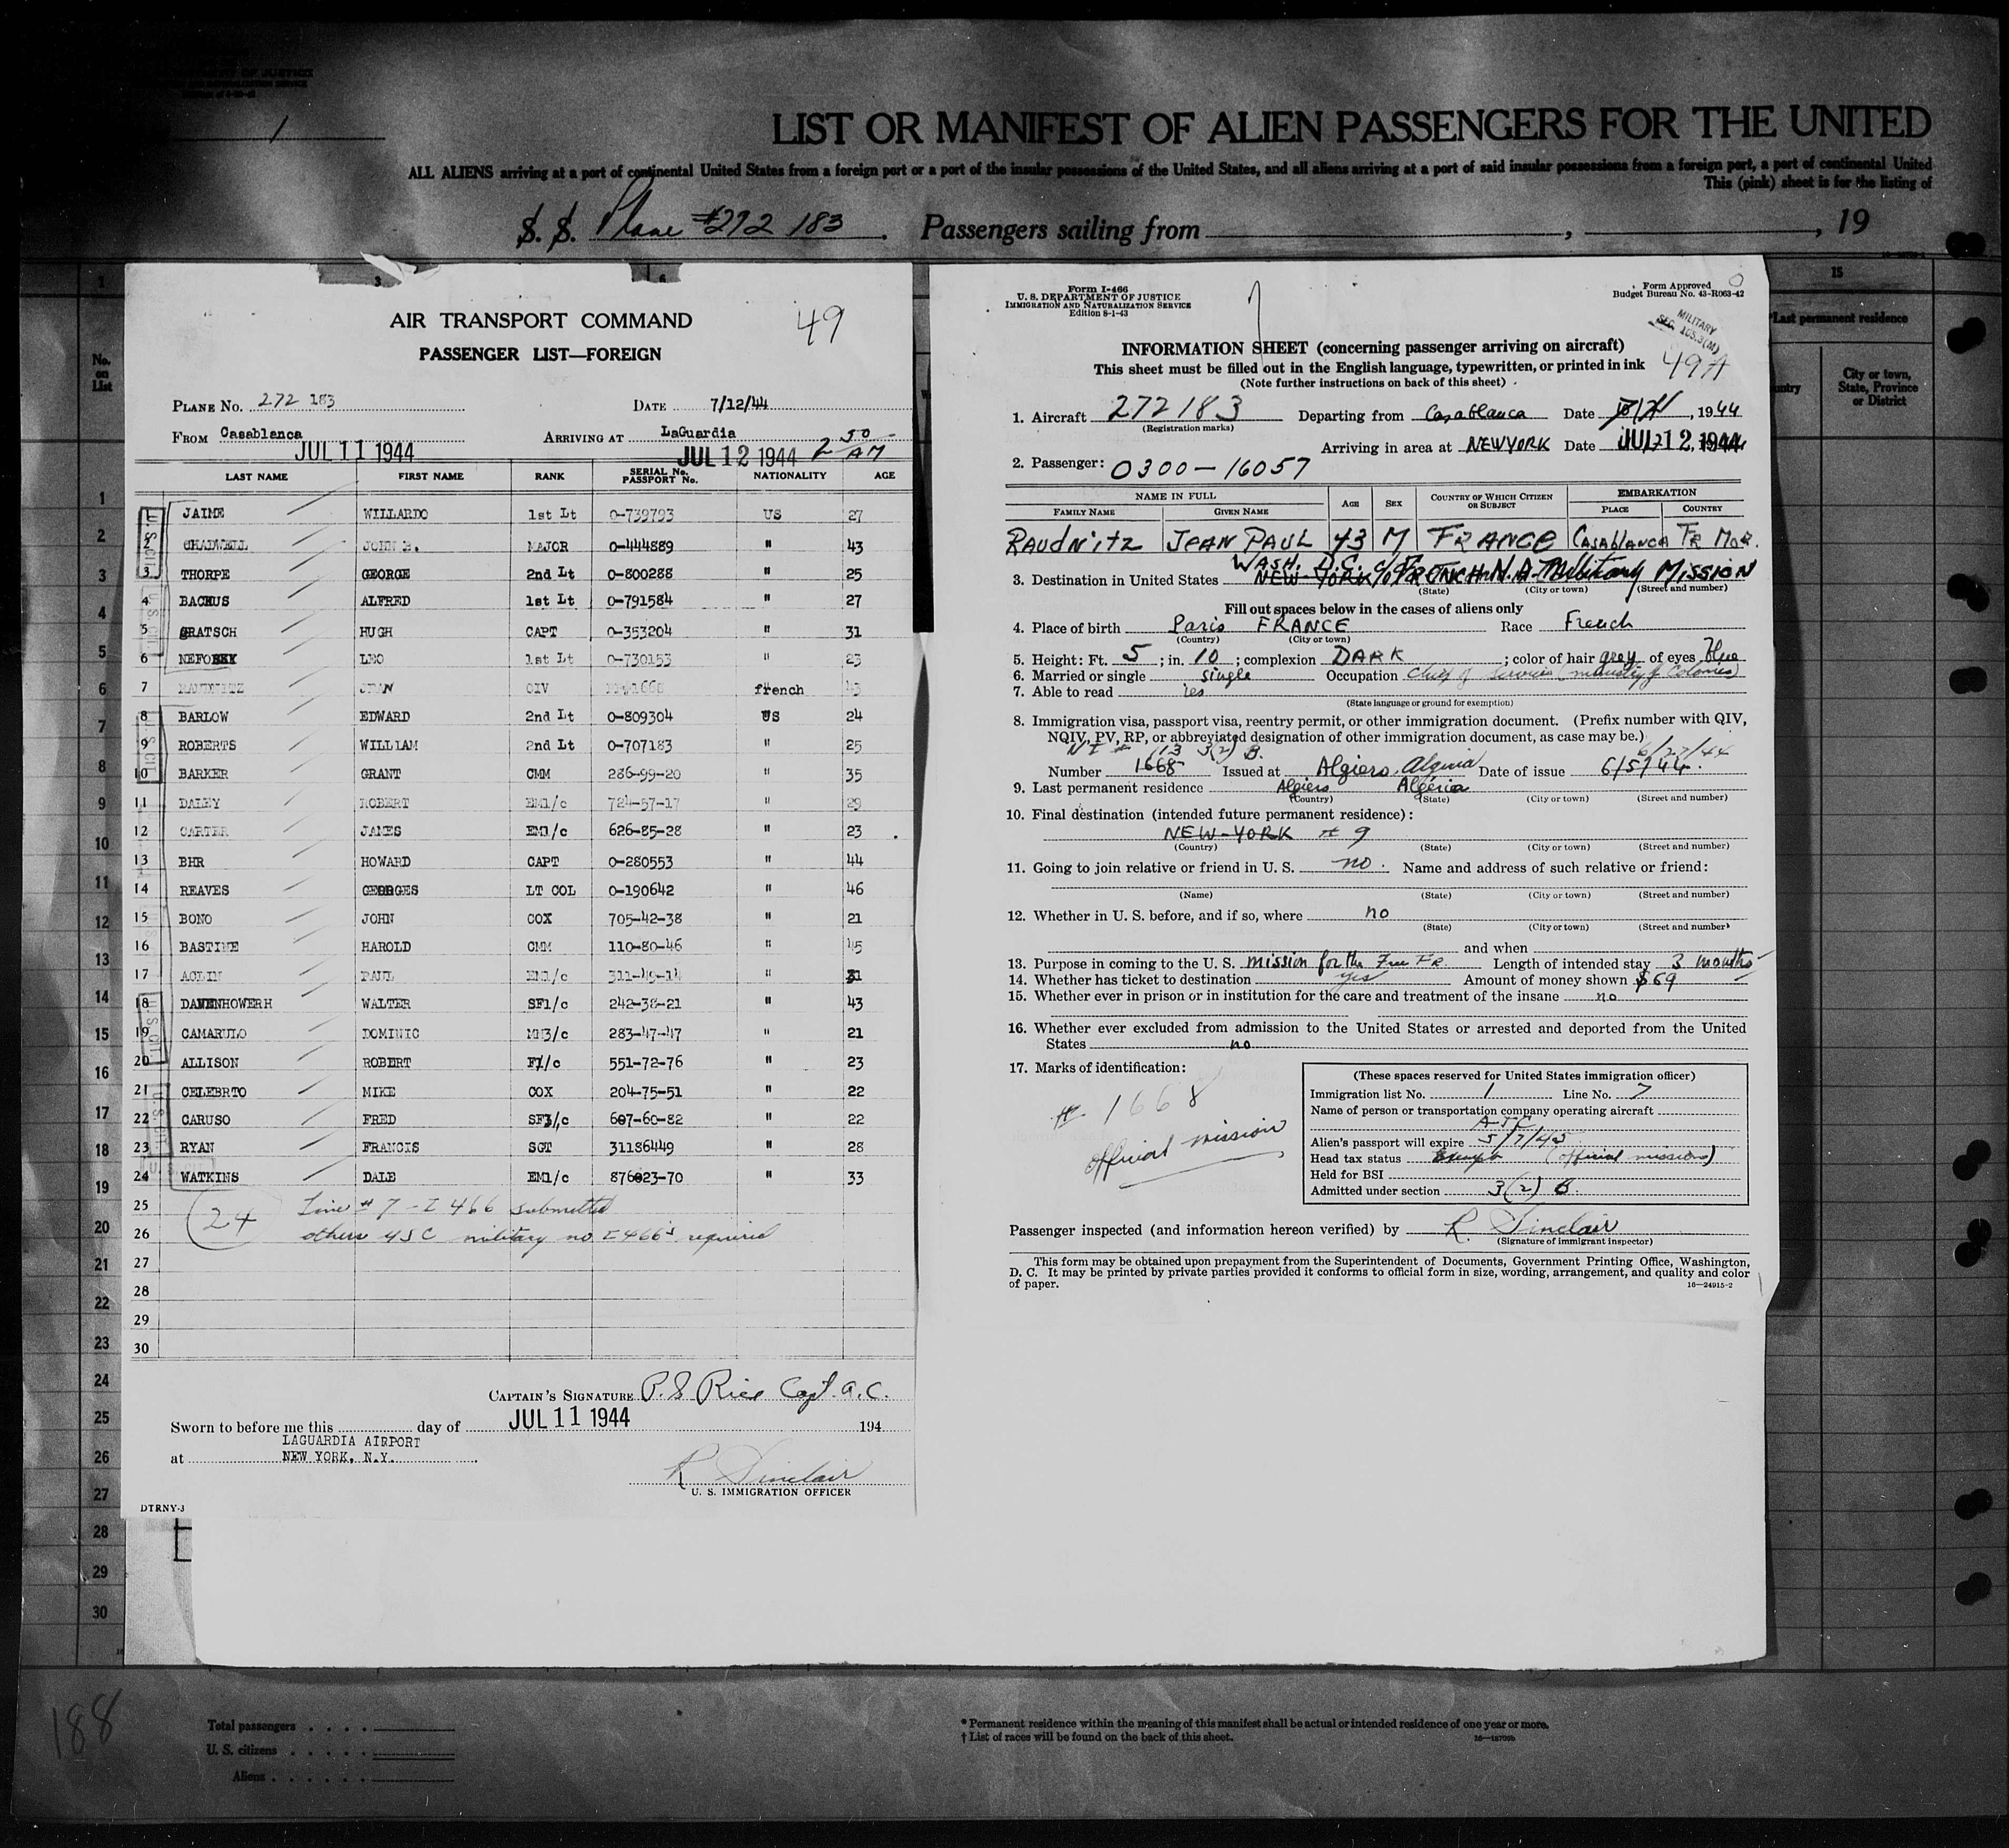 LIST OR MANIFEST OF ALIEN PASSENGERS FOR THE UNITED
ALL ALIENS arriving at a port of continental United States from a foreign port or a port of the insular possessions of the United States, and all aliens arriving at a port of said insular possessions from a foreign port, a port of continental United
This (pink) sheet is for the listing of
S. S. Plane #272 183 Passengers sailing from , , 19
AIR TRANSPORT COMMAND
PASSENGER LIST—FOREIGN
49
PLANE NO. 272 183 DATE 7/12/44
FROM Casablanca ARRIVING AT LaGuardia
JUL 11 1944 JUL 12 1944 2 50 AM
LAST NAME FIRST NAME RANK SERIAL No. PASSPORT No. NATIONALITY AGE
JAIME WILLARDO 1st Lt 0-739793 US 27
2 CHADWELL JOHN B. MAJOR 0-444889 " 43
3 THORPE GEORGE 2nd Lt 0-800288 " 25
4 BACHUS ALFRED 1st Lt 0-791584 " 27
5 GRATSCH HUGH CAPT 0-353204 " 31
6 LEO 1st Lt 0-730153 " 23
7 RAUDNITZ JEAN CIV 1668 french 43
8 BARLOW EDWARD 2nd Lt 0-809304 US 24
9 ROBERTS WILLIAM 2nd Lt 0-707183 " 25
10 BARKER GRANT CMM 286-99-20 " 35
11 DALEY ROBERT EM1/c 724-57-17 " 29
12 CARTER JAMES EM1/c 626-85-28 " 23
13 BHR HOWARD CAPT 0-280553 " 44
14 REAVES GEORGES LT COL 0-190642 " 46
15 BONO JOHN COX 705-42-38 " 21
16 BASTINE HAROLD CMM 110-80-46 " 45
17 PAUL EM1/c 311-49-14 " 31
18 DAVENHOWERH WALTER SF1/c 242-38-21 " 43
19 CAMARULO DOMINIC MM3/c 283-47-47 " 21
20 ALLISON ROBERT F1/c 551-72-76 " 23
21 CELEBRTO MIKE COX 204-75-51 " 22
22 CARUSO FRED SF3/c 607-60-82 " 22
23 RYAN FRANCIS SGT 31186449 " 28
24 WATKINS DALE EM1/c 876023-70 " 33
25 Line # 7 - I 466 submitted
24
26 others USC military no I 466's required
27
28
29
30
CAPTAIN'S SIGNATURE P. S Rice Capt. A.C.
Sworn to before me this day of JUL 11 1944 194
LAGUARDIA AIRPORT
at NEW YORK, N.Y.
R Sinclair
U. S. IMMIGRATION OFFICER
DTRNY-3
Form I-466
U. S. DEPARTMENT OF JUSTICE
IMMIGRATION AND NATURALIZATION SERVICE
Edition 8-1-43
Form Approved
Budget Bureau No. 43-R063-42
MILITARY
SEC. 105.3(M)
49A
INFORMATION SHEET (concerning passenger arriving on aircraft)
This sheet must be filled out in the English language, typewritten, or printed in ink
(Note further instructions on back of this sheet)
1. Aircraft 272183 Departing from Casablanca Date , 1944
(Registration marks)
Arriving in area at NEWYORK Date JUL 12 1944
2. Passenger: 0300-16057
NAME IN FULL AGE SEX COUNTRY OF WHICH CITIZEN OR SUBJECT EMBARKATION
FAMILY NAME GIVEN NAME PLACE COUNTRY
RAUDNITZ JEAN PAUL 43 M FRANCE CASABLANCA FR MOR.
WASH. D.C.
3. Destination in United States NEW-YORK c/o FRENCH N.A. Military MISSION
(State) (City or town) (Street and number)
Fill out spaces below in the cases of aliens only
4. Place of birth Paris FRANCE Race French
(Country) (City or town)
5. Height: Ft. 5 ; in. 10 ; complexion DARK ; color of hair grey of eyes Blue
6. Married or single single Occupation Chief of services (ministry of Colonies)
7. Able to read yes
(State language or ground for exemption)
8. Immigration visa, passport visa, reentry permit, or other immigration document. (Prefix number with QIV,
NQIV, PV, RP, or abbreviated designation of other immigration document, as case may be.)
113 3(2) B. 6/27/44
Number 1668 Issued at Algiers, Algeria Date of issue 6/5/44
9. Last permanent residence Algiers Algeria
(Country) (State) (City or town) (Street and number)
10. Final destination (intended future permanent residence):
NEW-YORK # 9
(Country) (State) (City or town) (Street and number)
11. Going to join relative or friend in U. S. no. Name and address of such relative or friend:
(Name) (State) (City or town) (Street and number)
12. Whether in U. S. before, and if so, where no
(State) (City or town) (Street and number)
and when
13. Purpose in coming to the U. S. mission for the Free FR. Length of intended stay 3 months
14. Whether has ticket to destination yes Amount of money shown $69
15. Whether ever in prison or in institution for the care and treatment of the insane no
16. Whether ever excluded from admission to the United States or arrested and deported from the United
States no
17. Marks of identification:
# 1668
official mission
(These spaces reserved for United States immigration officer)
Immigration list No. 1 Line No. 7
Name of person or transportation company operating aircraft
ATC
Alien's passport will expire 5/7/45
Head tax status Exempt (official mission)
Held for BSI
Admitted under section 3(2) B.
Passenger inspected (and information hereon verified) by R. Sinclair
(Signature of immigrant inspector)
This form may be obtained upon prepayment from the Superintendent of Documents, Government Printing Office, Washington,
D. C. It may be printed by private parties provided it conforms to official form in size, wording, arrangement, and quality and color
of paper. 16—24915-2
15
*Last permanent residence
City or town, State, Province or District
No. on List
188
Total passengers
U. S. citizens
Aliens
* Permanent residence within the meaning of this manifest shall be actual or intended residence of one year or more.
† List of races will be found on the back of this sheet.